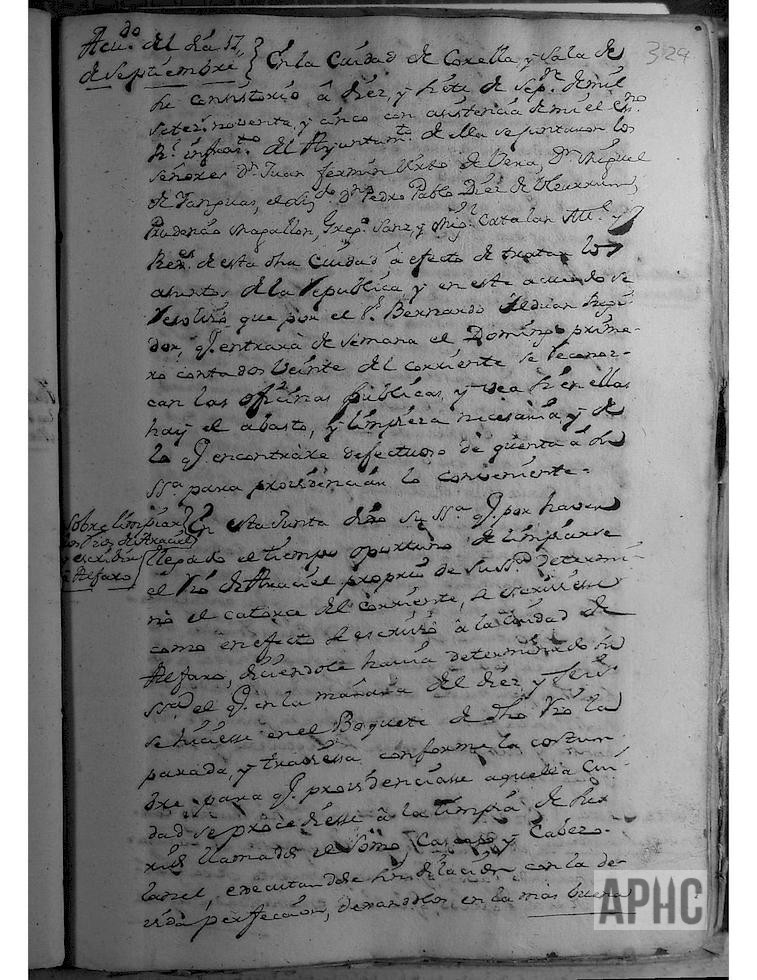 324
Acu.do del dia 17,,
de Septiembre
En la Ciudad de Corella, y Sala de
su consistorio à diez, y siete de Sep.re de mil
setez.s noventa, y cinco con asistencia de mi el es.no
R.l infras.to del Ayuntam.to de ella se juntaron los
señores D.n Juan Fermin Virto de Vera, D.n Miguel
de Tanguas, el Liz.do D.n Pedro Pablo Diez de Ulzurrun,
Prudencio Magallon, Greg.o Sanz, y Mig.l Catalan Alc.e y
Rex.es de esta dha Ciudad à efecto de tratar los
asuntos de la Republica, y en este acuerdo se
resolvió que por el S.r Bernardo Alduan Regi-
dor, q.e entrara de semana el Domingo prime-
ro contados veinte del corriente se reconoz-
can las oficinas publicas, y vea si en ellas
hay el abasto, y limpieza necesaria, y de
lo q.e encontrare defectuoso de quenta à su
ss.a para providenciar lo conveniente=
Sobre limpiar
los rios de Araciel
y escribir
à Alfaro
En esta Junta dixo su ss.a q.e por haver
llegado el tiempo oportuno de limpiarse
el rio de Araciel proprio de su ss.a determi-
nò el catorce del corriente, se escriviesse
como en efecto se escriviò à la Ciudad de
Alfaro, diciendole havia determinado su
ss.a el q.e en la mañana del diez y seis
se hiciesse en el Boquete de dho rio la
parada, y traviessa conforme la costum-
bre para q.e providenciasse aquella Ciu-
dad se procediesse à la limpia de sus
rios llamados el Somo, Cascajo y Cabezo-
lanel, executandose sin dilacion con la de-
vida perfeccion, dexandolos en la mas buena
APHC